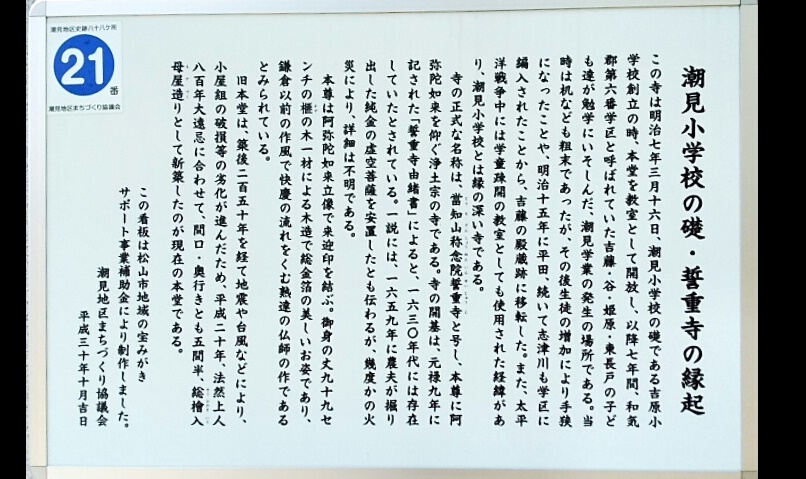 潮見地区史跡八十八ケ所
21番
潮見地区まちづくり協議会
潮見小学校の礎・誓重寺の縁起
この寺は明治七年三月十六日、潮見小学校の礎である吉原小
学校創立の時、本堂を教室として開放し、以降七年間、和気
郡第六番学区と呼ばれていた吉藤・谷・姫原・東長戸の子ど
も達が勉学にいそしんだ、潮見学業の発生の場所である。当
時は机なども粗末であったが、その後生徒の増加により手狭
になったことや、明治十五年に平田、続いて志津川も学区に
編入されたことから、吉藤の殿蔵跡に移転した。また、太平
洋戦争中には学童疎開の教室としても使用された経緯があ
り、潮見小学校とは縁の深い寺である。
寺の正式な名称は、當知山称念院誓重寺と号し、本尊に阿
弥陀如来を仰ぐ浄土宗の寺である。寺の開基は、元禄九年に
記された「誓重寺由緒書」によると、一六三〇年代には存在
していたとされている。一説には、一六五九年に農夫が掘り
出した純金の虚空菩薩を安置したとも伝わるが、幾度かの火
災により、詳細は不明である。
本尊は阿弥陀如来立像で来迎印を結ぶ。御身の丈九十九セ
ンチの榧の木一材による木造で総金箔の美しいお姿であり、
鎌倉以前の作風で快慶の流れをくむ熟達の仏師の作である
とみられている。
旧本堂は、築後二百五十年を経て地震や台風などにより、
小屋組の破損等の劣化が進んだため、平成二十年、法然上人
八百年大遠忌に合わせて、間口・奥行きとも五間半、総檜入
母屋造りとして新築したのが現在の本堂である。
この看板は松山市地域の宝みがき
サポート事業補助金により制作しました。
潮見地区まちづくり協議会
平成三十年十月吉日